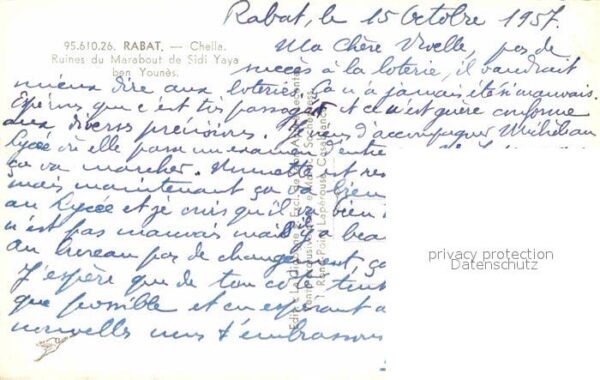 Rabat, le 15 Octobre 1957.
95.610.26. RABAT. — Chella.
Ruines du Marabout de Sidi Yaya
ben Younès.
Ma Chère Vovelle, pas de
succès à la loterie, il vaudrait
mieux dire aux loteries. Ça n'a jamais été si mauvais.
Espérons que c'est très passager et ce n'est guère conforme
aux diverses prévisions. Je viens d'accompagner
Lycée où elle passe un examen d'entre
ça va marcher. est res
mais maintenant ça va bien
au Lycée et je crois qu'il va bien
n'est pas mauvais mais il a beau
au bureau pas de changement, ça
J'espère que de ton côté tout
que possible et en espérant
nouvelles nous t'embrassons
privacy protection
Datenschutz